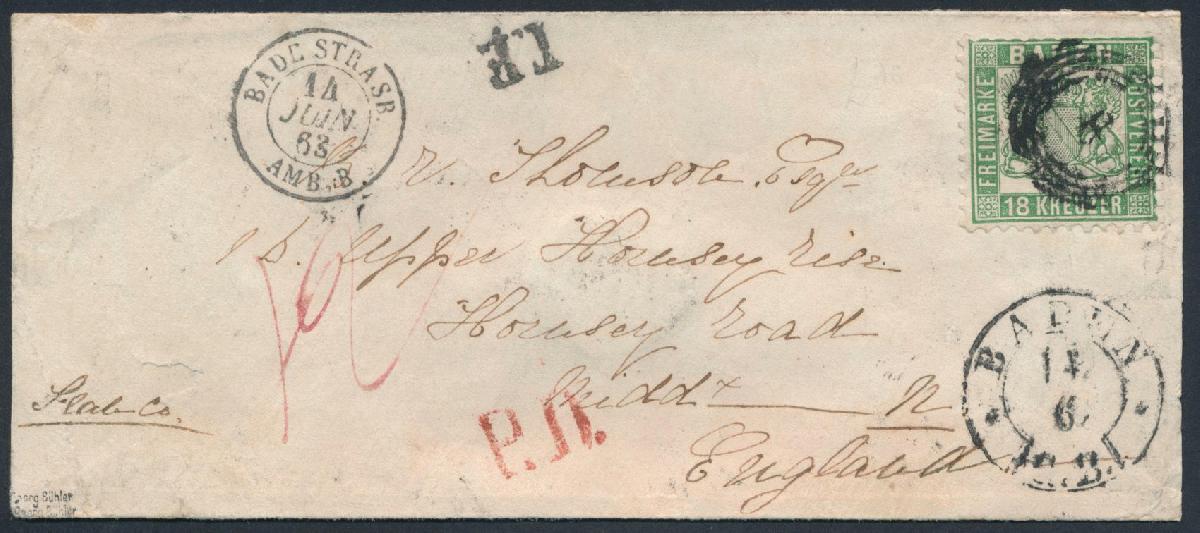 BADE STRASB.
14
JUIN
63
AMB. B.
BADEN
FREIMARKE
POSTVEREIN
18 KREUZER
8
W. Thomson Esqr
Upper Hornsey rise
Hornsey road
Middx N
England
P.D.
BADEN
14
6
Georg Bühler
Georg Bühler